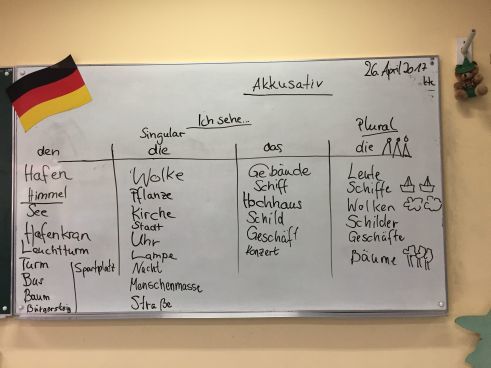 26. April 2017
Akkusativ
Ich sehe...
Singular
Plural
den
die
das
die
Hafen
Himmel
See
Hafenkran
Leuchtturm
Turm
Sportplatz
Bus
Baum
Bürgersteig
Wolke
Pflanze
Kirche
Stadt
Uhr
Lampe
Nacht
Menschenmasse
Straße
Gebäude
Schiff
Hochhaus
Schild
Geschäft
Konzert
Leute
Schiffe
Wolken
Schilder
Geschäfte
Bäume